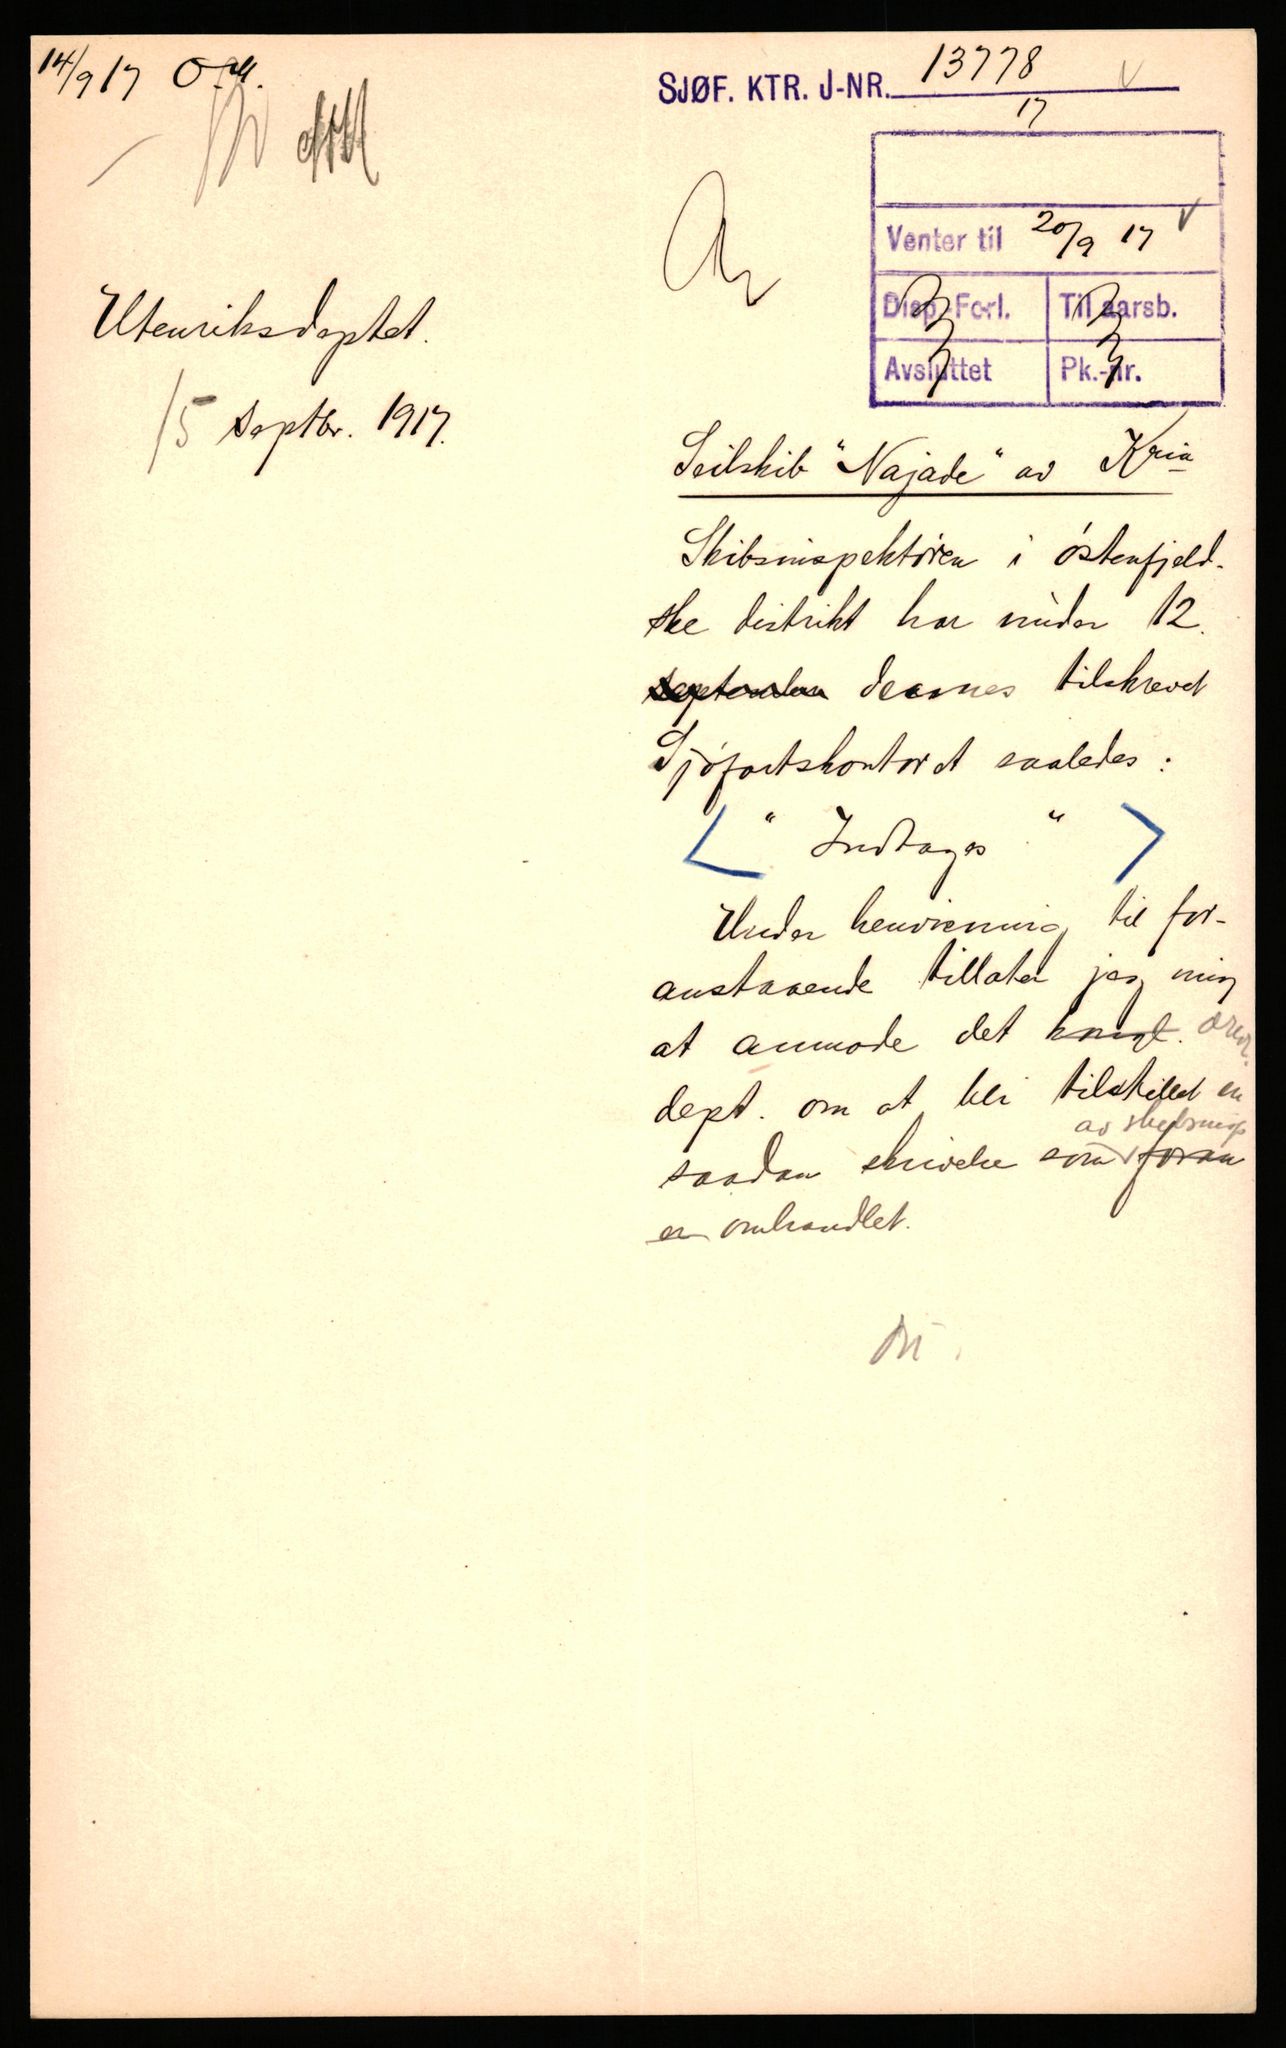 14/9 17 O.M.
SJØF. KTR. J-NR. 13778
17
Venter til 20/9 17
Disp. Forl.
Til aarsb.
Avsluttet
Pk.-nr.
Utenriksdeptet.
15 septbr. 1917.
Seilskib "Najade" av Kria
Skibsinspektøren i østenfjeld-
ske distrikt har under 12.
september dennes tilskrevet
Sjøfartskontoret saaledes:
< " Indtages " >
Under henvisning til for-
anstaaende tillater jeg mig
at anmode det kongl. ærede
dept. om at bli tilstillet en
av skibsinsp
saadan skrivelse som foran
er omhandlet.